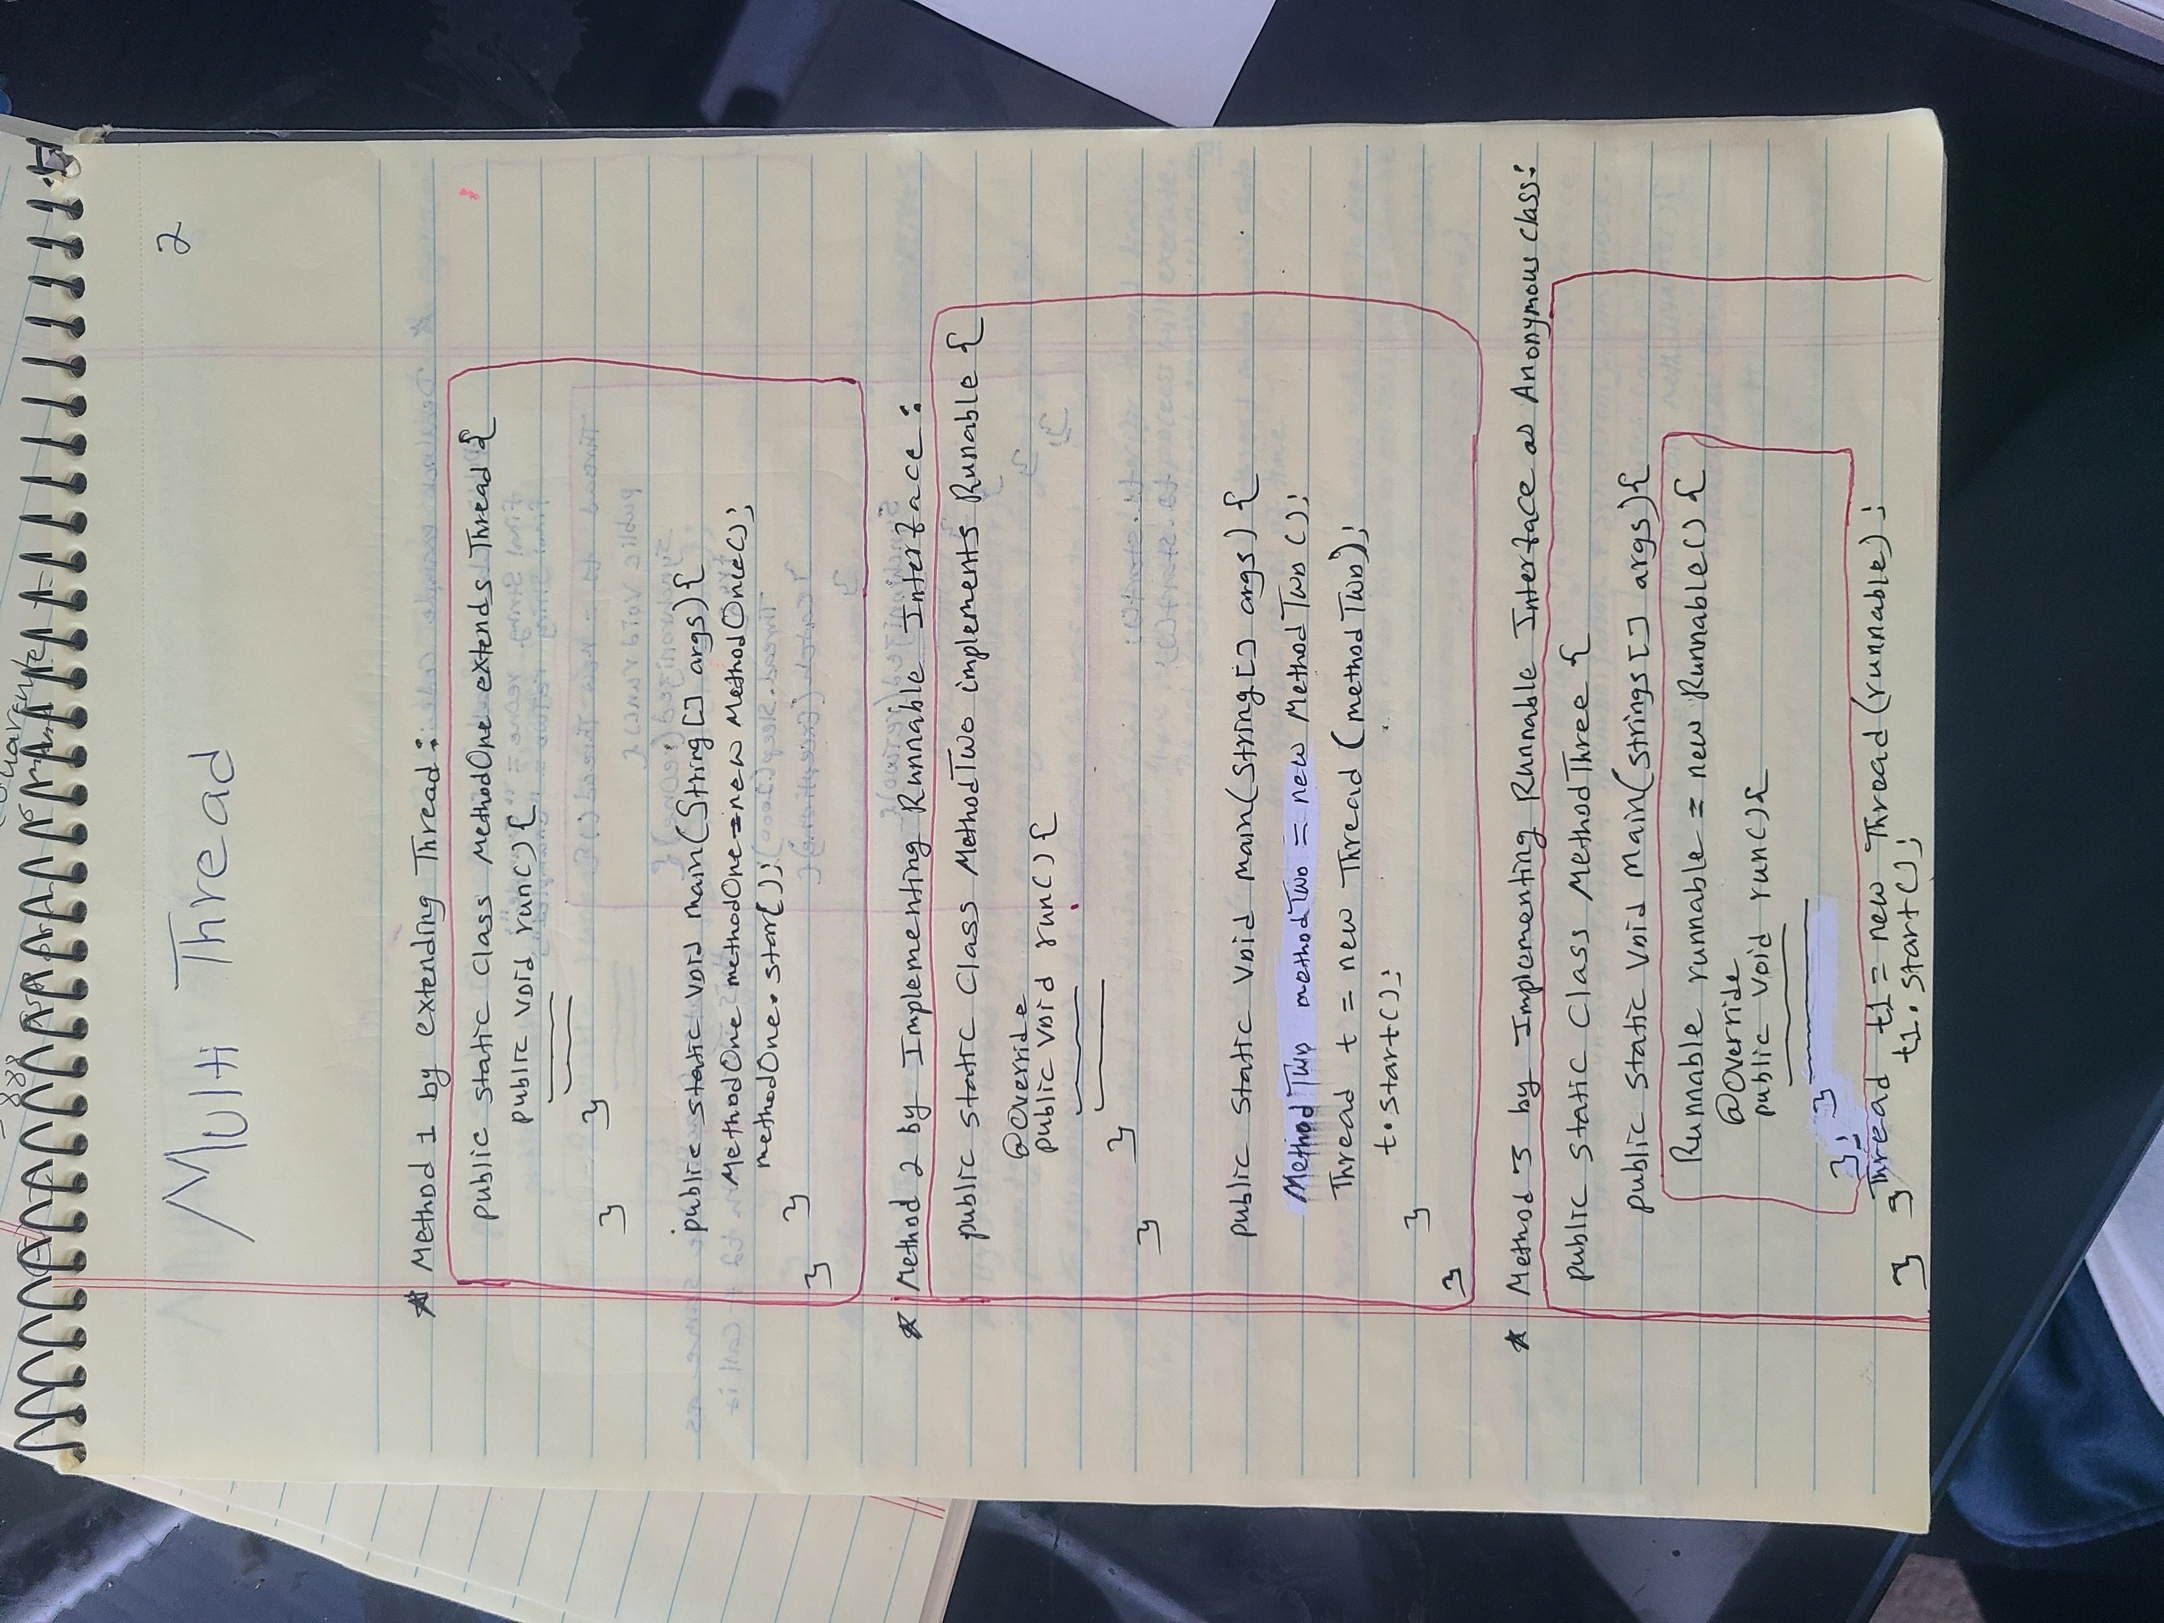 2
Multi Thread
* Method 1 by extending Thread:
public static class MethodOne extends Thread {
public void run() {
}
}
public static void main(String[] args) {
MethodOne methodOne = new MethodOne();
methodOne.start();
}
}
* Method 2 by Implementing Runnable Interface:
public static class MethodTwo implements Runnable {
@Override
public void run() {
}
}
public static void main(String[] args) {
MethodTwo methodTwo = new MethodTwo();
Thread t = new Thread (methodTwo);
t.start();
}
}
* Method 3 by Implementing Runnable Interface as Anonymous class:
public static class MethodThree {
public static void main(Strings[] args) {
Runnable runnable = new Runnable() {
@Override
public void run() {
}
};
Thread t1 = new Thread (runnable);
t1.start();
}
}